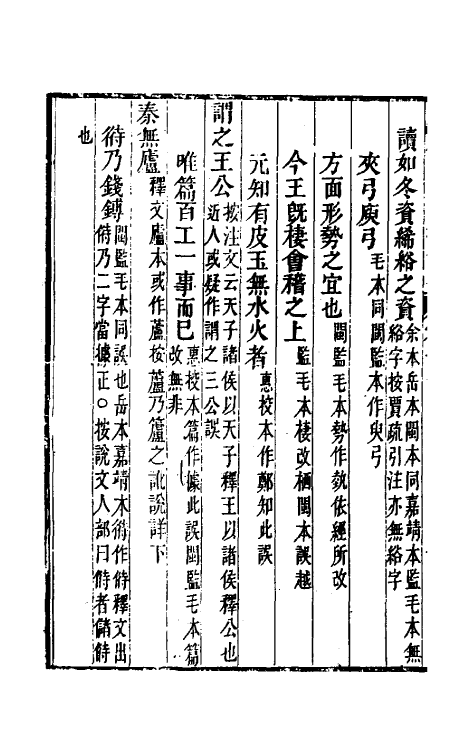 讀如冬資絺綌之資余本岳本閩本同嘉靖本監毛本無綌字按賈疏引注亦無綌字
夾弓庾弓毛本同閩監本作臾弓
方面形勢之宜也閩監毛本勢作埶依經所改
今王既棲會稽之上監毛本棲改栖閩本誤越
元知有皮玉無水火者惠校本作鄭知此誤
謂之王公按注文云天子諸侯以天子釋王以諸侯釋公也近人或疑作謂之三公誤
唯篇百工一事而已惠校本篇作據此誤閩監毛本篇改無非
秦無廬釋文廬本或作蘆按蘆乃籚之訛說詳下
待乃錢鎛閩監毛本同誤也岳本嘉靖本待作偫釋文出偫乃二字當據正○按說文人部曰偫者儲偫
也